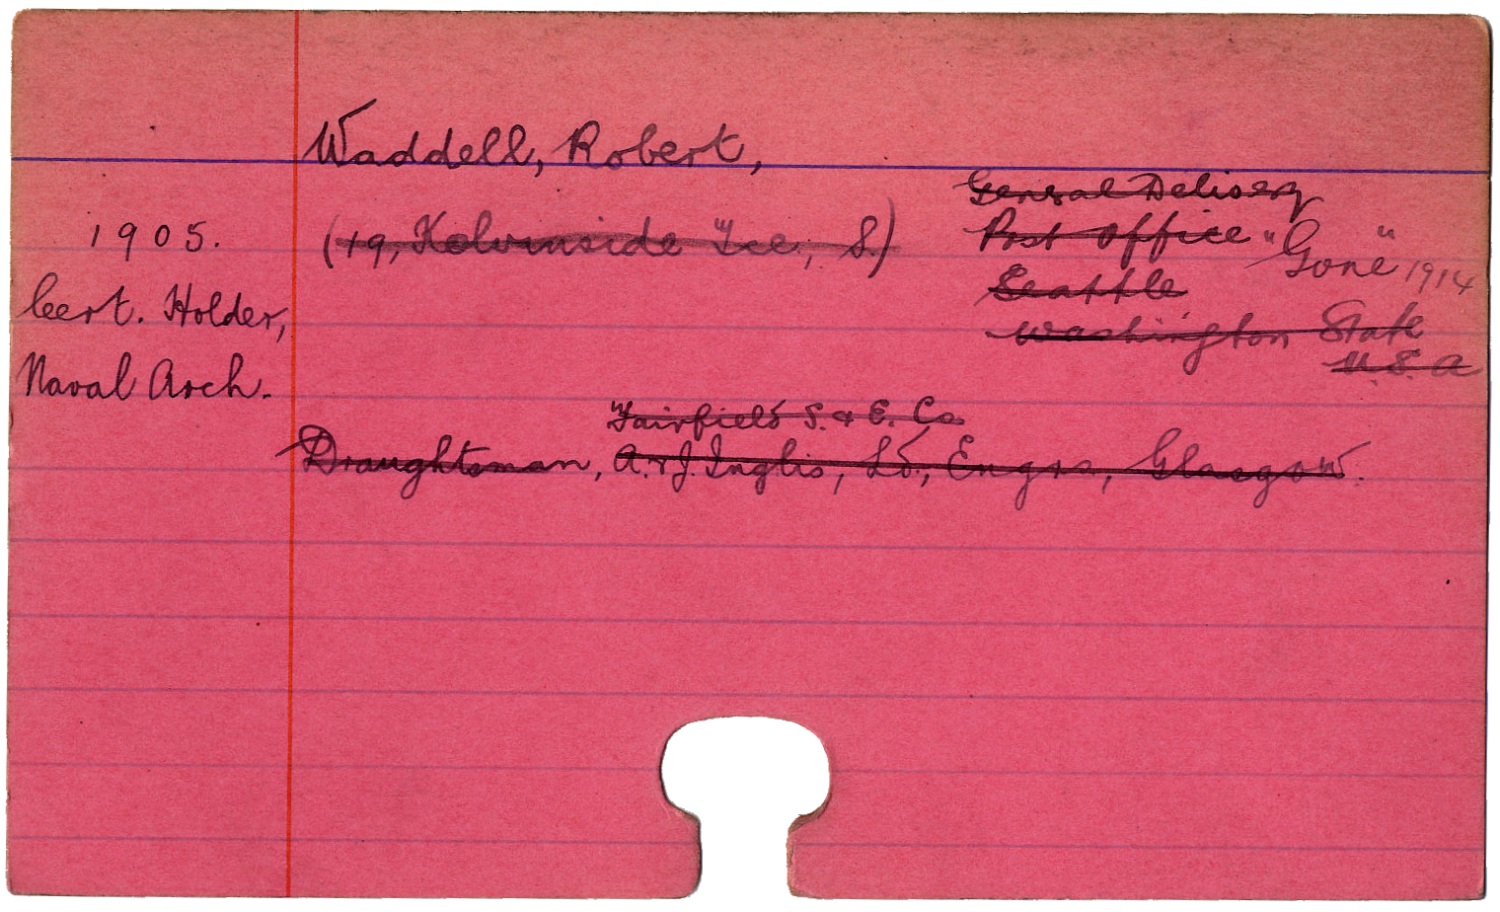 Waddell, Robert,
1905.
Cert. Holder,
Naval Arch.
(19, Kelvinside Tce., S.)
General Delivery
Post Office "Gone" 1914
Seattle
Washington State
U.S.A
Fairfield S. & E. Co.
Draughtsman, A. & J. Inglis, Ld., Engrs, Glasgow.